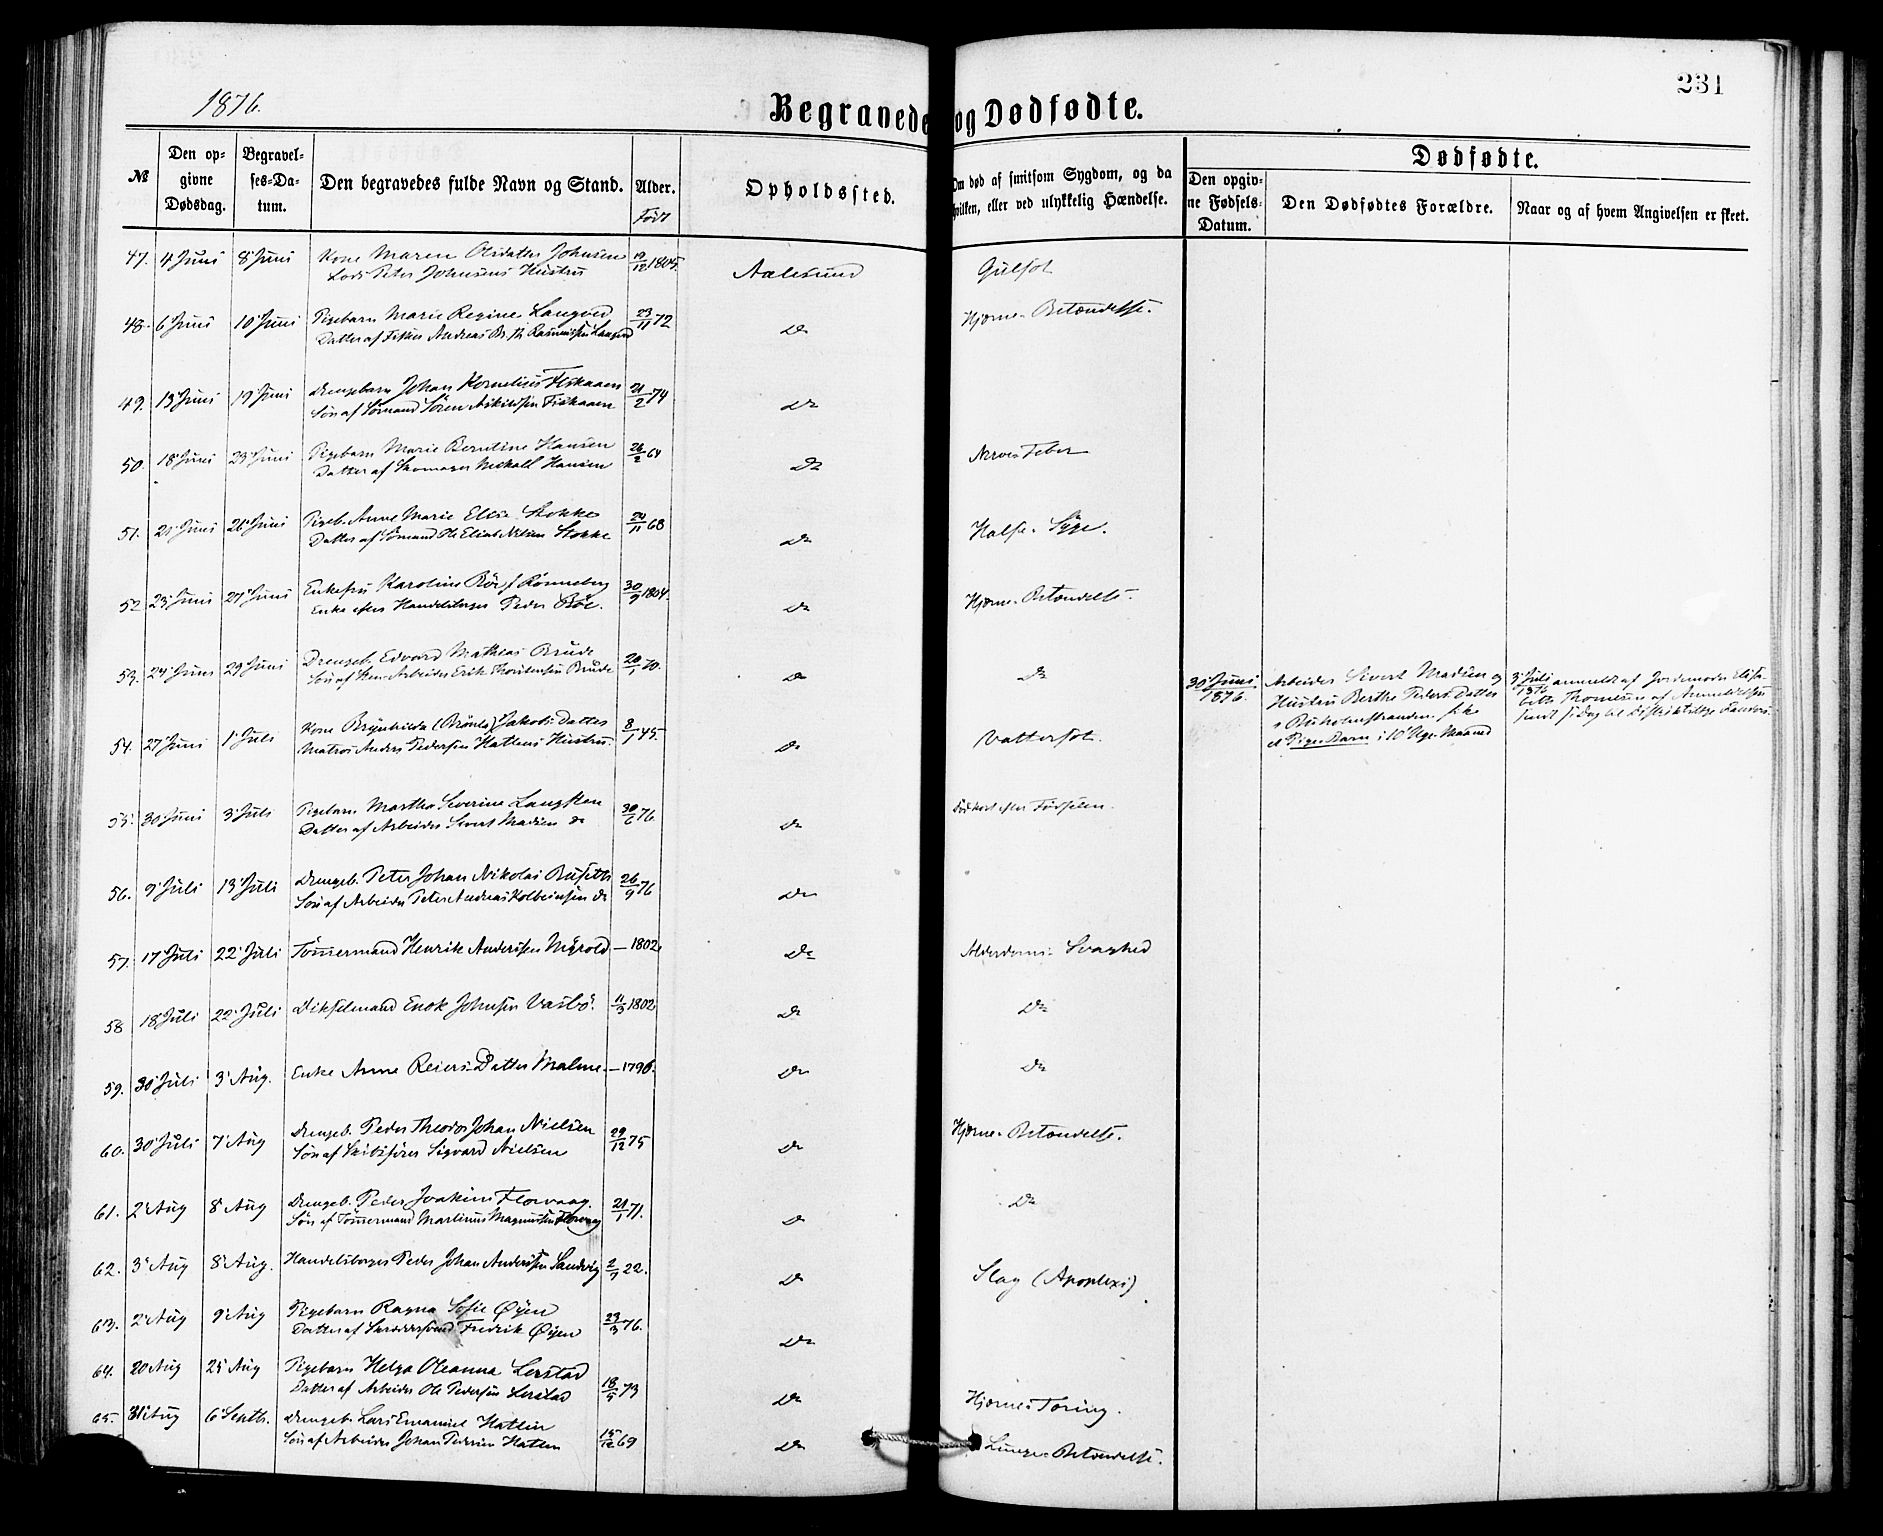 231
1876.
Begravede og Dødfødte.
№
Den op-
givne
Dødsdag.
Begravel-
ses-Da-
tum.
Den begravedes fulde Navn og Stand.
Alder.
Født
Opholdssted.
Om død af smitsom Sygdom, og da
hvilken, eller ved ulykkelig Hændelse.
Dødfødte.
Den opgiv-
ne Fødsels-
Datum.
Den Dødfødtes Forældre.
Naar og af hvem Angivelsen er skeet.
47. 4 Juni 8 Juni Kone Maren Olsdatter Johnsen 19/12 1805. Aalesund Gulsot
Lods Peter Johnsens Hustru
48. 6 Juni 10 Juni Pigebarn Marie Regine Langved 23/11 72 Do Hjerne-Betændelse.
Datter af Fisker Andreas Rasmussen Langved
49. 13 Juni 19 Juni Drengebarn Johan Kornelius Fiskaaen 21/2 74 Do
Søn af Sømand Søren Fiskaaen
50. 18 Juni 23 Juni Pigebarn Marie Berntine Hansen 26/2 64 Do Nerve-Feber
Datter af Skomager Hansen
51. 21 Juni 26 Juni Pigeb. Anne Marie Elise Stokke 24/11 68 Do Halse-Syge.
Datter af Sømand Ole Elias Nilsen Stokke
52. 23 Juni 27 Juni Enkefru Karoline Böe f. Rönneberg 30/9 1804. Do Hjerne-Betændelse.
Enke efter Handelsborger Peder Böe.
53. 24 Juni 29 Juni Drengeb. Edvard Mathias Brude 20/1 70. Do Do
Søn af Arbeider Erik Thorstensen Brude
30 Juni
1876.
Arbeider Sivert Madsen og
Hustru Berthe Peders Datter
et Pige-Barn i 10
3 Juli
1876 anmeldt af Jordemoder
Thomesen
54. 27 Juni 1 Juli Kone Brynhilda Jakobs Datter 8/1 45. Do Vattersot.
Matros Anders Pedersen Hatlens Hustru.
55. 30 Juni 3 Juli Pigebarn Martha Severine Langsten 30/6 76. Do Død kort efter Fødselen.
Datter af Arbeider Sivert Madsen do
56. 9 Juli 13 Juli Drengeb. Peter Johan Nikolai Buseth 26/9 76 Do
Søn af Arbeider Peter Andreas Kolbeinsen do
57. 17 Juli 22 Juli Tömmermand Henrik Anderssen Myrold — 1802. Do Alderdoms-Svaghed
58 18 Juli 22 Juli Enok Johnsen Vasbö. 11/3 1802 Do Do
59. 30 Juli 3 Aug. Enke Anne Reiers Datter Malme — 1796. Do Do
60. 30 Juli 7 Aug Drengeb. Peder Theodor Johan Nielsen 29/12 75 Do Hjerne-Betændelse.
Søn af Skibsfører Sigvard Nielsen
61. 2 Aug 8 Aug Drengeb. Peder Joakim Florvaag. 21/1 71. Do Do
Søn af Tömmermand Martinus Magnussen Florvaag
62. 3 Aug 8 Aug. Handelsborger Peder Johan Anderssen Sandvig 2/1 22. Do Slag (Apoplexi)
63. 2 Aug 9 Aug Pigebarn Ragna Sofie Øyen 23/3 76. Do
Datter af Fredrik Øyen
64. 20 Aug 25 Aug Pigebarn Helga Oleanna Lerstad 18/5 73 Do Hjerne-Tæring.
Datter af Arbeider Ole Pedersen Lerstad
65. 31 Aug 6 Septb. Drengeb. Lars Emanuel Hatlen 15/12 69 Do Lunge-Betændelse.
Søn af Arbeider Johan Pedersen Hatlen